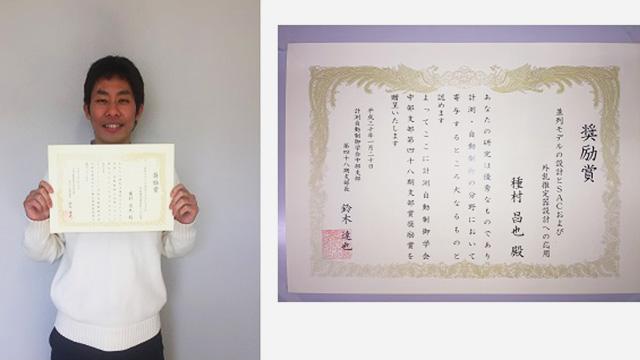 奨励賞
並列モデルの設計とSACおよび
外乱推定器設計への応用
種村昌也殿
あなたの研究は優秀なものであり
計測・自動制御の分野において
寄与するところ大なるものと
認めます
よってここに計測自動制御学会
中部支部第四十八期支部賞奨励賞を
贈呈いたします
平成三十年一月二十日
計測自動制御学会中部支部
第四十八期支部長
鈴木達也
奨励賞